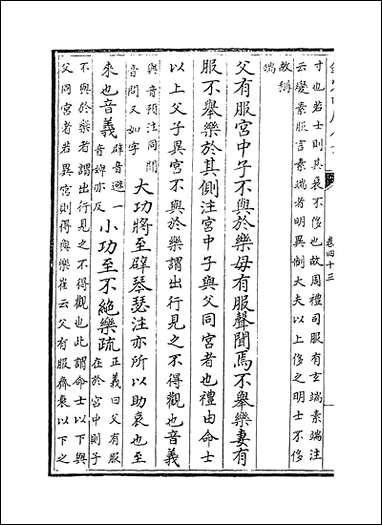 卷四十三
寸也若士則其衰不侈也故周禮司服有玄端素端注
云變素服言素端者明異制大夫以上侈之明士不侈
故稱
端
父有服宮中子不與於樂母有服聲聞焉不舉樂妻有
服不舉樂於其側注宮中子與父同宮者也禮由命士
以上父子異宮不與於樂謂出行見之不得觀也音義
與音預注同聞
音問又如字
大功將至辟琴瑟注亦所以助哀也至
來也音義
辟音避一
音婢亦反
小功至不絶樂疏
正義曰父有服
在於宮中則子
不與於樂者謂出行見之不得觀也此謂命士以下與
父同宮者若異宮則得與樂崔云父有服齊衰以下之